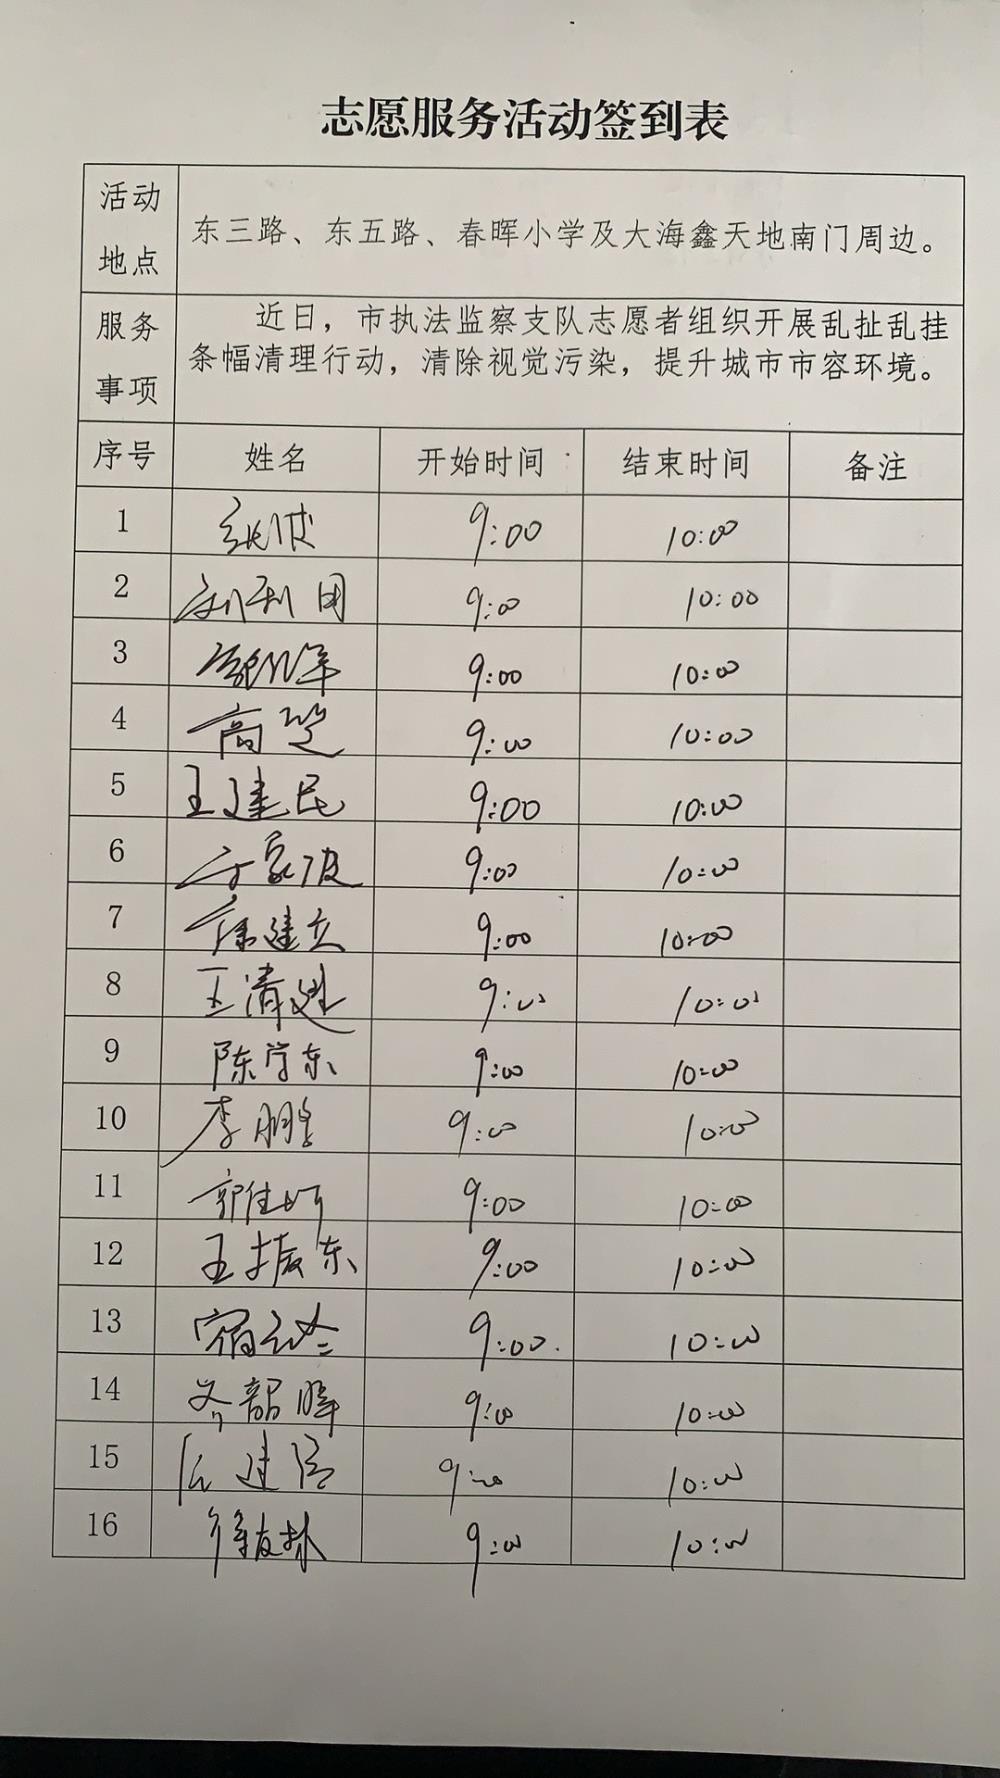 志愿服务活动签到表
活动地点
东三路、东五路、春晖小学及大海鑫天地南门周边。
服务事项
近日，市执法监察支队志愿者组织开展乱扯乱挂
条幅清理行动，清除视觉污染，提升城市市容环境。
序号 姓名 开始时间 结束时间 备注
1 9:00 10:00
2 9:00 10:00
3 9:00 10:00
4 高 9:00 10:00
5 王建民 9:00 10:00
6 9:00 10:00
7 徐建立 9:00 10:00
8 王清 9:00 10:00
9 陈学东 9:00 10:00
10 李鹏 9:00 10:00
11 郭佳 9:00 10:00
12 王振东 9:00 10:00
13 宿 9:00 10:00
14 齐韶晖 9:00 10:00
15 建 9:00 10:00
16 9:00 10:00